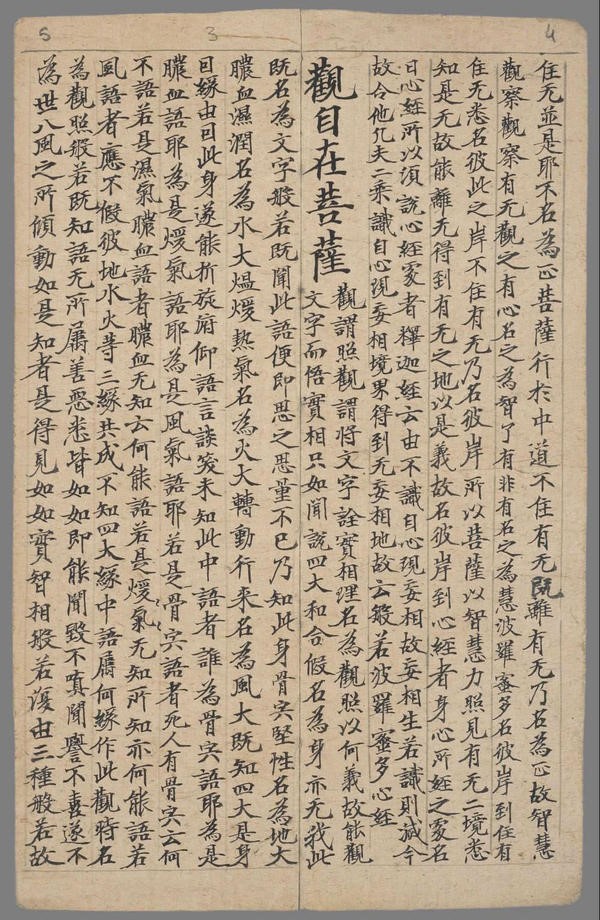 4
3
5
住无並是耶不名為正菩薩行於中道不住有无既離有无乃名為正故智慧
觀察觀察有无觀之有心名之為智了有非有名之為慧波羅蜜多名彼岸到住有
住无悉名彼此之岸不住有无乃名彼岸所以菩薩以智慧力照見有无二境悉
知是无故能離无得到有无之地以是義故名彼岸到心經者身心所經之處名
曰心經所以須說心經家者釋迦經云由不識自心現妄相故妄相生若識則滅今
故合他凡夫二乘識自心現妄相境界得到无妄相地故云般若波羅蜜多心經
觀自在菩薩
觀謂照觀謂將文字詮實相理名為觀照以何義故能觀
文字而悟實相只如聞說四大和合假名為身亦无我此
既名為文字般若既聞此語便即思之思量不已乃知此身骨宍堅性名為地大
膿血濕潤名為水大熅煖熱氣名為火大轉動行来名為風大既知四大是身
曰緣由曰此身遂能折旋府仰語言談笑未知此中語者誰為骨宍語耶為是
膿血語耶為是煖氣語耶為是風氣語耶若是骨宍語者死人有骨宍云何
不語若是濕氣膿血語者膿血无知云何能語若是煖氣无知所知亦何能語若
風語者應不假彼地水火等三緣共成不知四大緣中語屬何緣作此觀時名
為觀照般若既知語无所屬善惡悉皆如如即能聞毀不嗔聞譽不喜遂不
為世八風之所傾動如是知者是得見如如實智相般若復由三種般若故